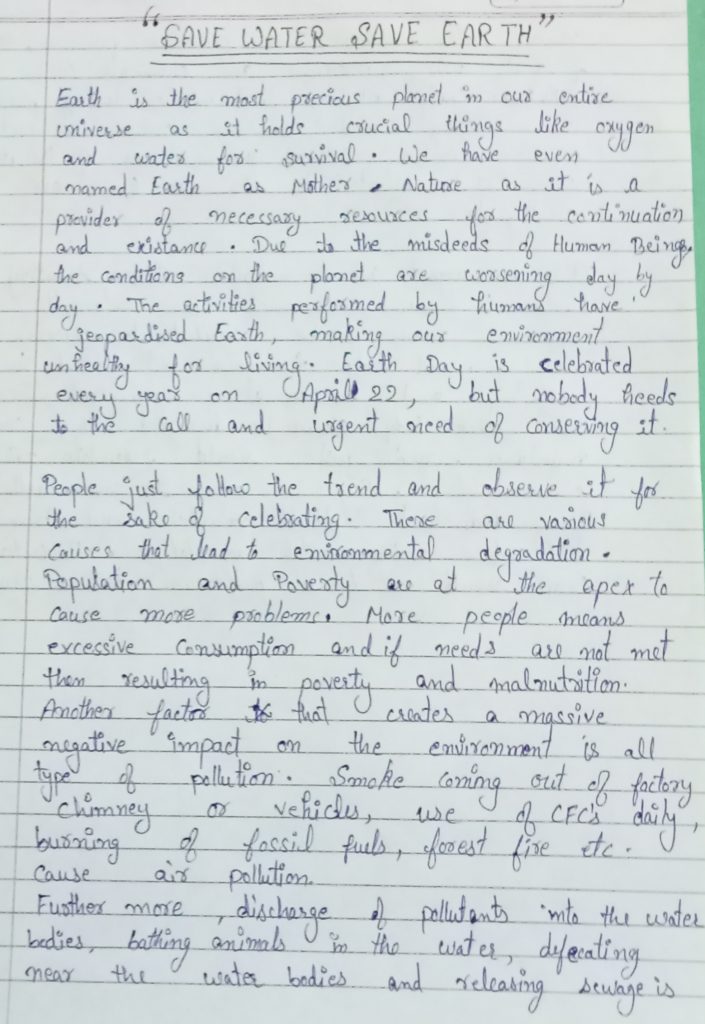 "SAVE WATER SAVE EARTH"
Earth is the most precious planet in our entire
universe as it holds crucial things like oxygen
and water for survival. We have even
named Earth as Mother Nature as it is a
provider of necessary resources for the continuation
and existance. Due to the misdeeds of Human Beings,
the conditions on the planet are worsening day by
day. The activities performed by humans have
jeopardised Earth, making our environment
unhealthy for living. Earth Day is celebrated
every year on April 22, but nobody heeds
to the call and urgent need of conserving it.
People just follow the trend and observe it for
the sake of celebrating. There are various
causes that lead to environmental degradation.
Population and Poverty are at the apex to
cause more problems. More people means
excessive consumption and if needs are not met
then resulting in poverty and malnutrition.
Another factor that creates a massive
negative impact on the environment is all
type of pollution. Smoke coming out of factory
chimney or vehicles, use of CFC's daily,
burning of fossil fuels, forest fire etc.
cause air pollution.
Further more, discharge of pollutants into the water
bodies, bathing animals in the water, defecating
near the water bodies and releasing sewage is